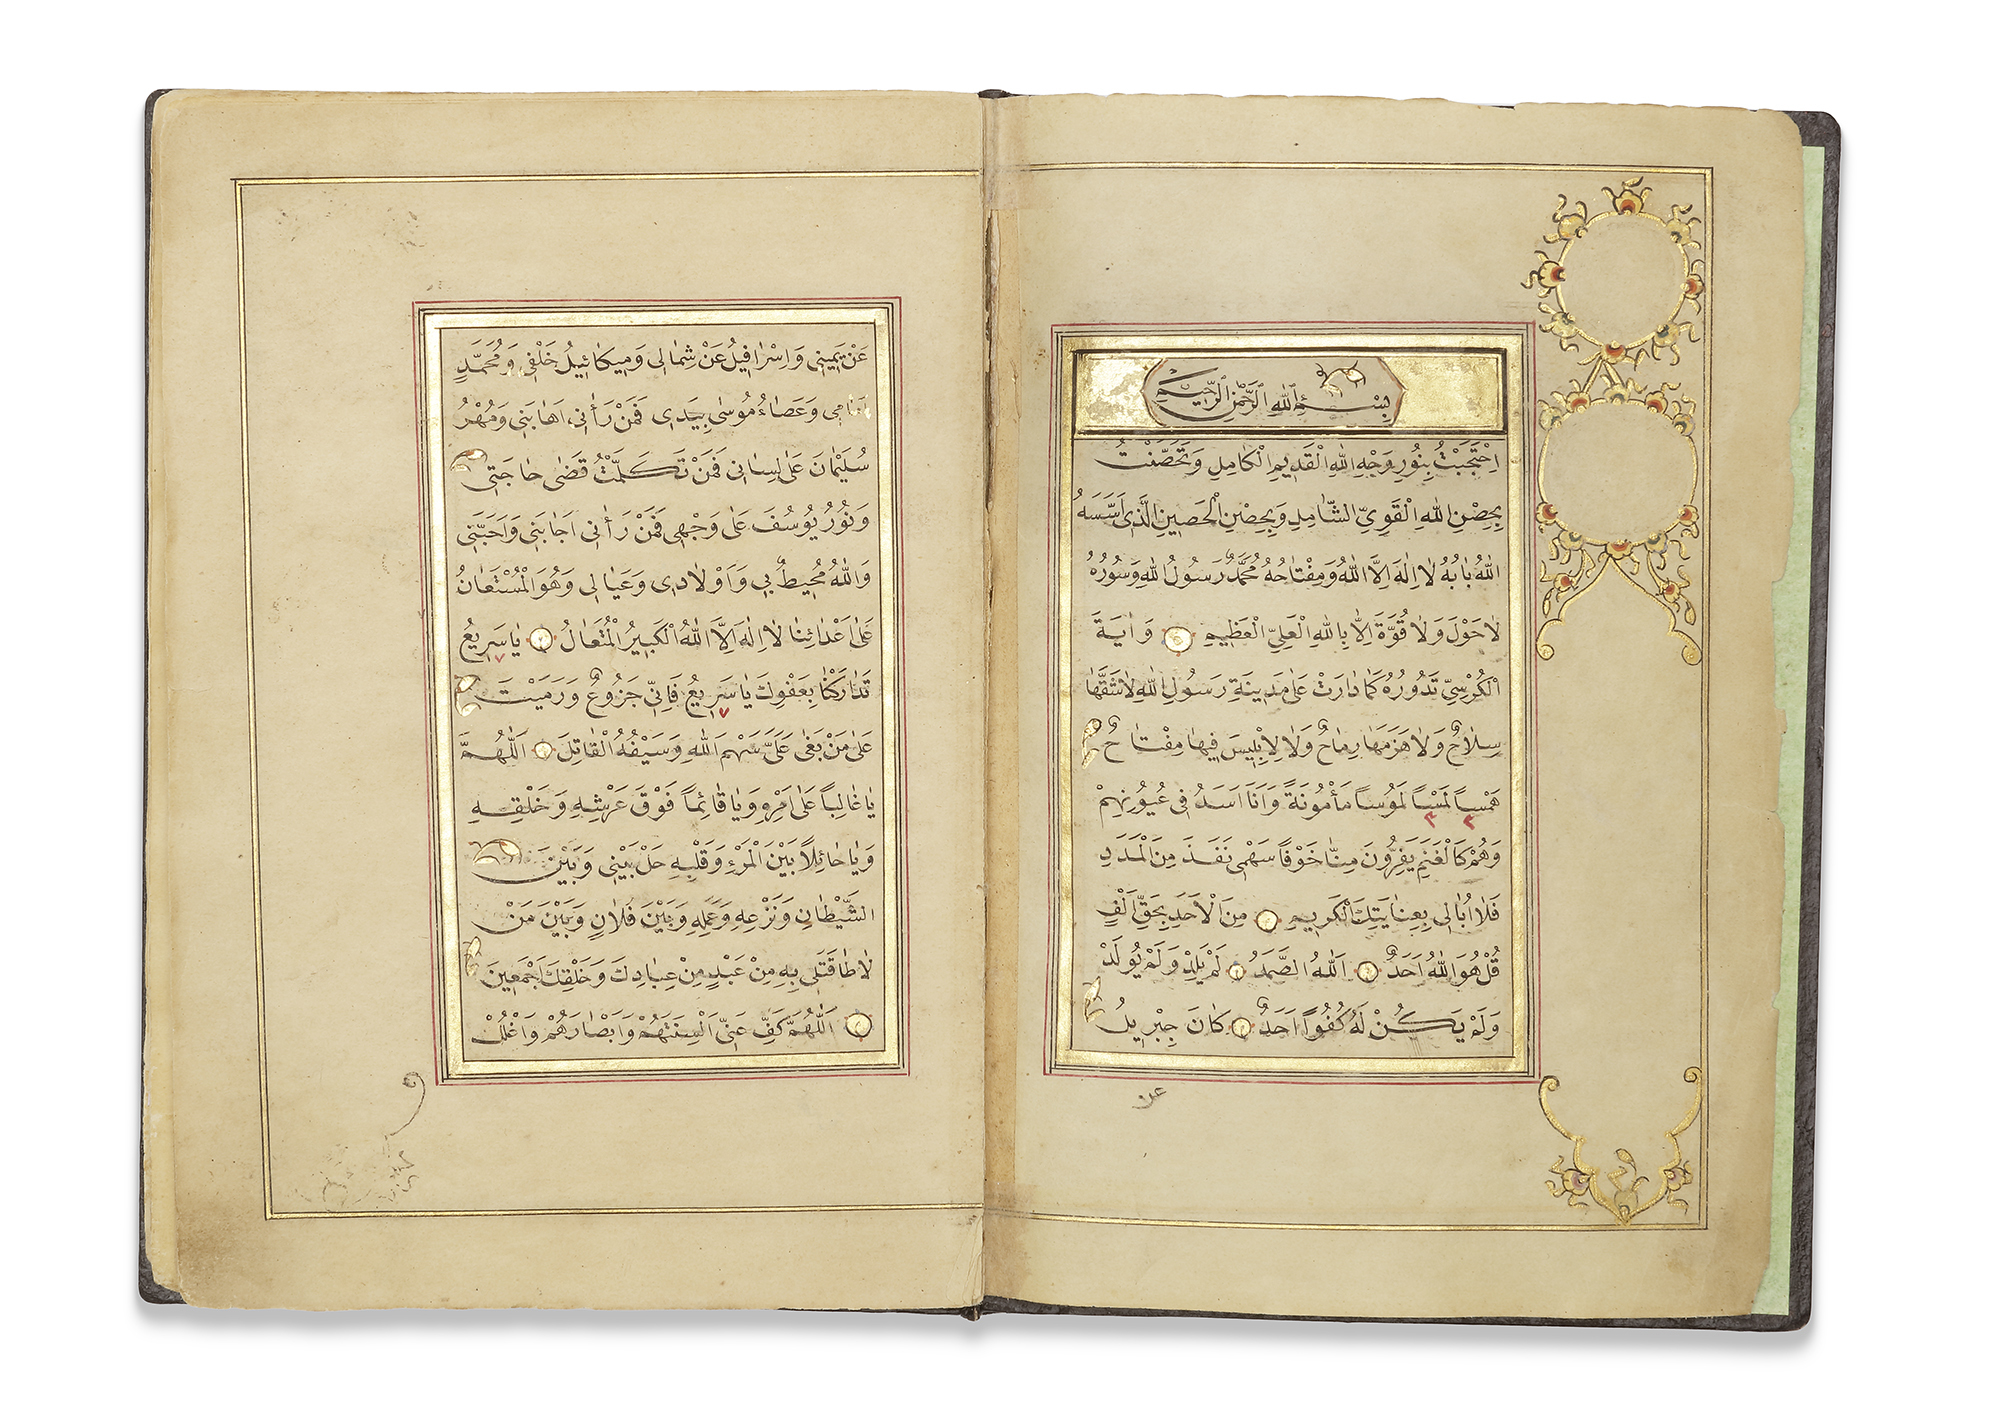 بِسْمِ اللهِ الرَّحْمٰنِ الرَّحِيمِ
اِحْتَجَبْتُ بِنُورِ وَجْهِ اللهِ الْقَدِيمِ الْكَامِلِ وَتَحَصَّنْتُ
بِحِصْنِ اللهِ الْقَوِيِّ الشَّامِلِ وَبِحِصْنِ الْحَصِينِ الَّذِي اَسَّسَهُ
اللهُ بَابُهُ لَا اِلٰهَ اِلَّا اللهُ وَمِفْتَاحُهُ مُحَمَّدٌ رَسُولُ اللهِ وَسُورُهُ
لَا حَوْلَ وَلَا قُوَّةَ اِلَّا بِاللهِ الْعَلِيِّ الْعَظِيمِ وَاٰيَةَ
الْكُرْسِيِّ تَدُورُهُ كَمَا دَارَتْ عَلٰى مَدِينَةِ رَسُولِ اللهِ لَا شَقَّهَا
سِلَاحٌ وَلَا هَزَمَهَا رِمَاحٌ وَلَا لِاِبْلِيسَ فِيهَا مِفْتَاحٌ
هَمْساً لَمْساً لَمُوساً مَأْمُونَةً وَاَنَا اَسَدٌ فِي عُيُونِهِمْ
٣ ٣
وَهُمْ كَالْغَنَمِ يَفِرُّونَ مِنَّا خَوْفاً سَهْمِي نَفَذَ مِنَ الْمَدَدِ
فَلَا اُبَالِي بِعِنَايَتِكَ الْكَرِيمِ مِنَ الْاَحَدِ بِحَقِّ اَلْفِ
قُلْ هُوَ اللهُ اَحَدٌ اَللهُ الصَّمَدُ لَمْ يَلِدْ وَلَمْ يُولَدْ
وَلَمْ يَكُنْ لَهُ كُفُواً اَحَدٌ كَانَ جِبْرِيلُ
عن
عَنْ يَمِينِي وَاِسْرَافِيلُ عَنْ شِمَالِي وَمِيكَائِيلُ خَلْفِي وَمُحَمَّدٍ
اَمَامِي وَعَصَاءُ مُوسٰى بِيَدِي فَمَنْ رَأٰنِي اَهَابَنِي وَمُهْرُ
سُلَيْمَانَ عَلٰى لِسَانِي فَمَنْ تَكَلَّمْتُ قَضٰى حَاجَتِي
وَنُورُ يُوسُفَ عَلٰى وَجْهِي فَمَنْ رَأٰنِي اَجَابَنِي وَاَحَبَّنِي
وَاللهُ مُحِيطٌ بِي وَاَوْلَادِي وَعَيَالِي وَهُوَ الْمُسْتَعَانُ
عَلٰى اَعْدَائِنَا لَا اِلٰهَ اِلَّا اللهُ الْكَبِيرُ الْمُتَعَالُ يَا سَرِيعُ
٧
تَدَارَكْنَا بِعَفْوِكَ يَا سَرِيعُ فَاِنِّي جَزُوعٌ وَرَمَيْتَ
٧
عَلٰى مَنْ بَغٰى عَلَيَّ سَهْمَ اللهِ وَسَيْفُهُ الْقَاتِلَ اَللّٰهُمَّ
يَا غَالِباً عَلٰى اَمْرِهِ وَيَا قَائِماً فَوْقَ عَرْشِهِ وَخَلْقِهِ
وَيَا حَائِلاً بَيْنَ الْمَرْءِ وَقَلْبِهِ حَلْ بَيْنِي وَبَيْنَ
الشَّيْطَانِ وَنَزْعِهِ وَعَمَلِهِ وَبَيْنَ فُلَانٍ وَبَيْنَ مَنْ
لَا طَاقَتَلِي بِهِ مِنْ عَبْدٍ مِنْ عِبَادِكَ وَخَلْقِكَ اَجْمَعِينَ
اَللّٰهُمَّ كَفِّ عَنِّي اَلْسِنَتَهُمْ وَاَبْصَارَهُمْ وَاغْلُلْ